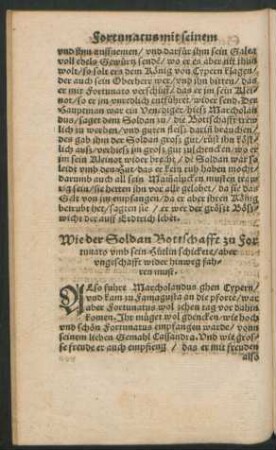 Fortunatus mit seinem
vnd ihn auffnemen / vnd darfür ihm sein Galea
voll edels Gewürtz sende / wo er es aber nit thun
wolt / so solt ers dem König von Cypern klagen /
der auch sein Oberherr wer / vnd ihn bitten / das
er mit Fortunato verschüff / das er im sein Klei-
not / so er im entfürt / wider send. Der
Hauptman war ein Venediger / hieß Marcholan
dus / saget dem Soldan zu / die Bottschafft trew
lich zu werben / vnd guten fleiß darin brauchen /
des gab ihm der Soldan groß gut / rüst ihn köst-
lich auß / verhieß im groß gut zu schencken / wo er
im sein Kleinot wider brecht / de Soldan war so
leidt vmb den hut / das er kein ruh haben mocht
darumb auch all sein Mamalucken musten traw
rig sein / sie hetten ihn vor alle gelobet / da sie das
Gelt von im empfangen / da er aber ihren König
betrübt het / sagten sie / er wer der gröst Böß-
wicht der auff Erdtrich lebet.
Wie der Soldan Bottschafft zu For
tunato vmb sein Hütlin schicket / aber
vngeschafft wider hinweg fah-
ren must.
Also fuhre Marcholandus ghen Cypern /
vnd kam zu Famagusta an die pforte / war
aber Fortunatus wol zehen tag vor dahin
komen. Ihr müget wol gdencken / wie hoch
vnd schön Fortunatus empfangen warde / vonn
seinem lieben Gemahl Cassandra. Vnd wie gros-
se freude er auch empfieng / das er mit freuden
also